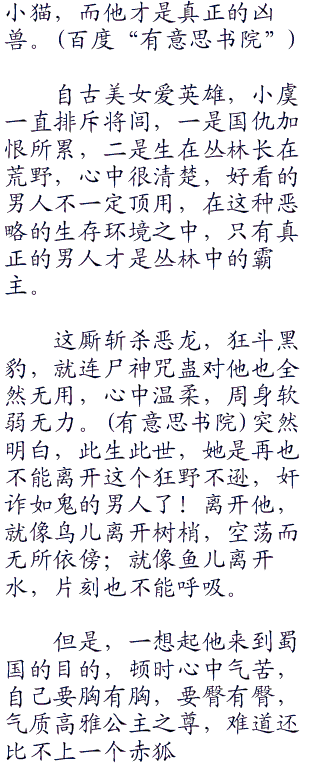 小猫，而他才是真正的凶
兽。(百度“有意思书院”)
自古美女爱英雄，小虞
一直排斥将闾，一是国仇加
恨所累，二是生在丛林长在
荒野，心中很清楚，好看的
男人不一定顶用，在这种恶
略的生存环境之中，只有真
正的男人才是丛林中的霸
主。
这厮斩杀恶龙，狂斗黑
豹，就连尸神咒蛊对他也全
然无用，心中温柔，周身软
弱无力。(有意思书院)突然
明白，此生此世，她是再也
不能离开这个狂野不逊，奸
诈如鬼的男人了！离开他，
就像鸟儿离开树梢，空荡而
无所依傍；就像鱼儿离开
水，片刻也不能呼吸。
但是，一想起他来到蜀
国的目的，顿时心中气苦，
自己要胸有胸，要臀有臀，
气质高雅公主之尊，难道还
比不上一个赤狐